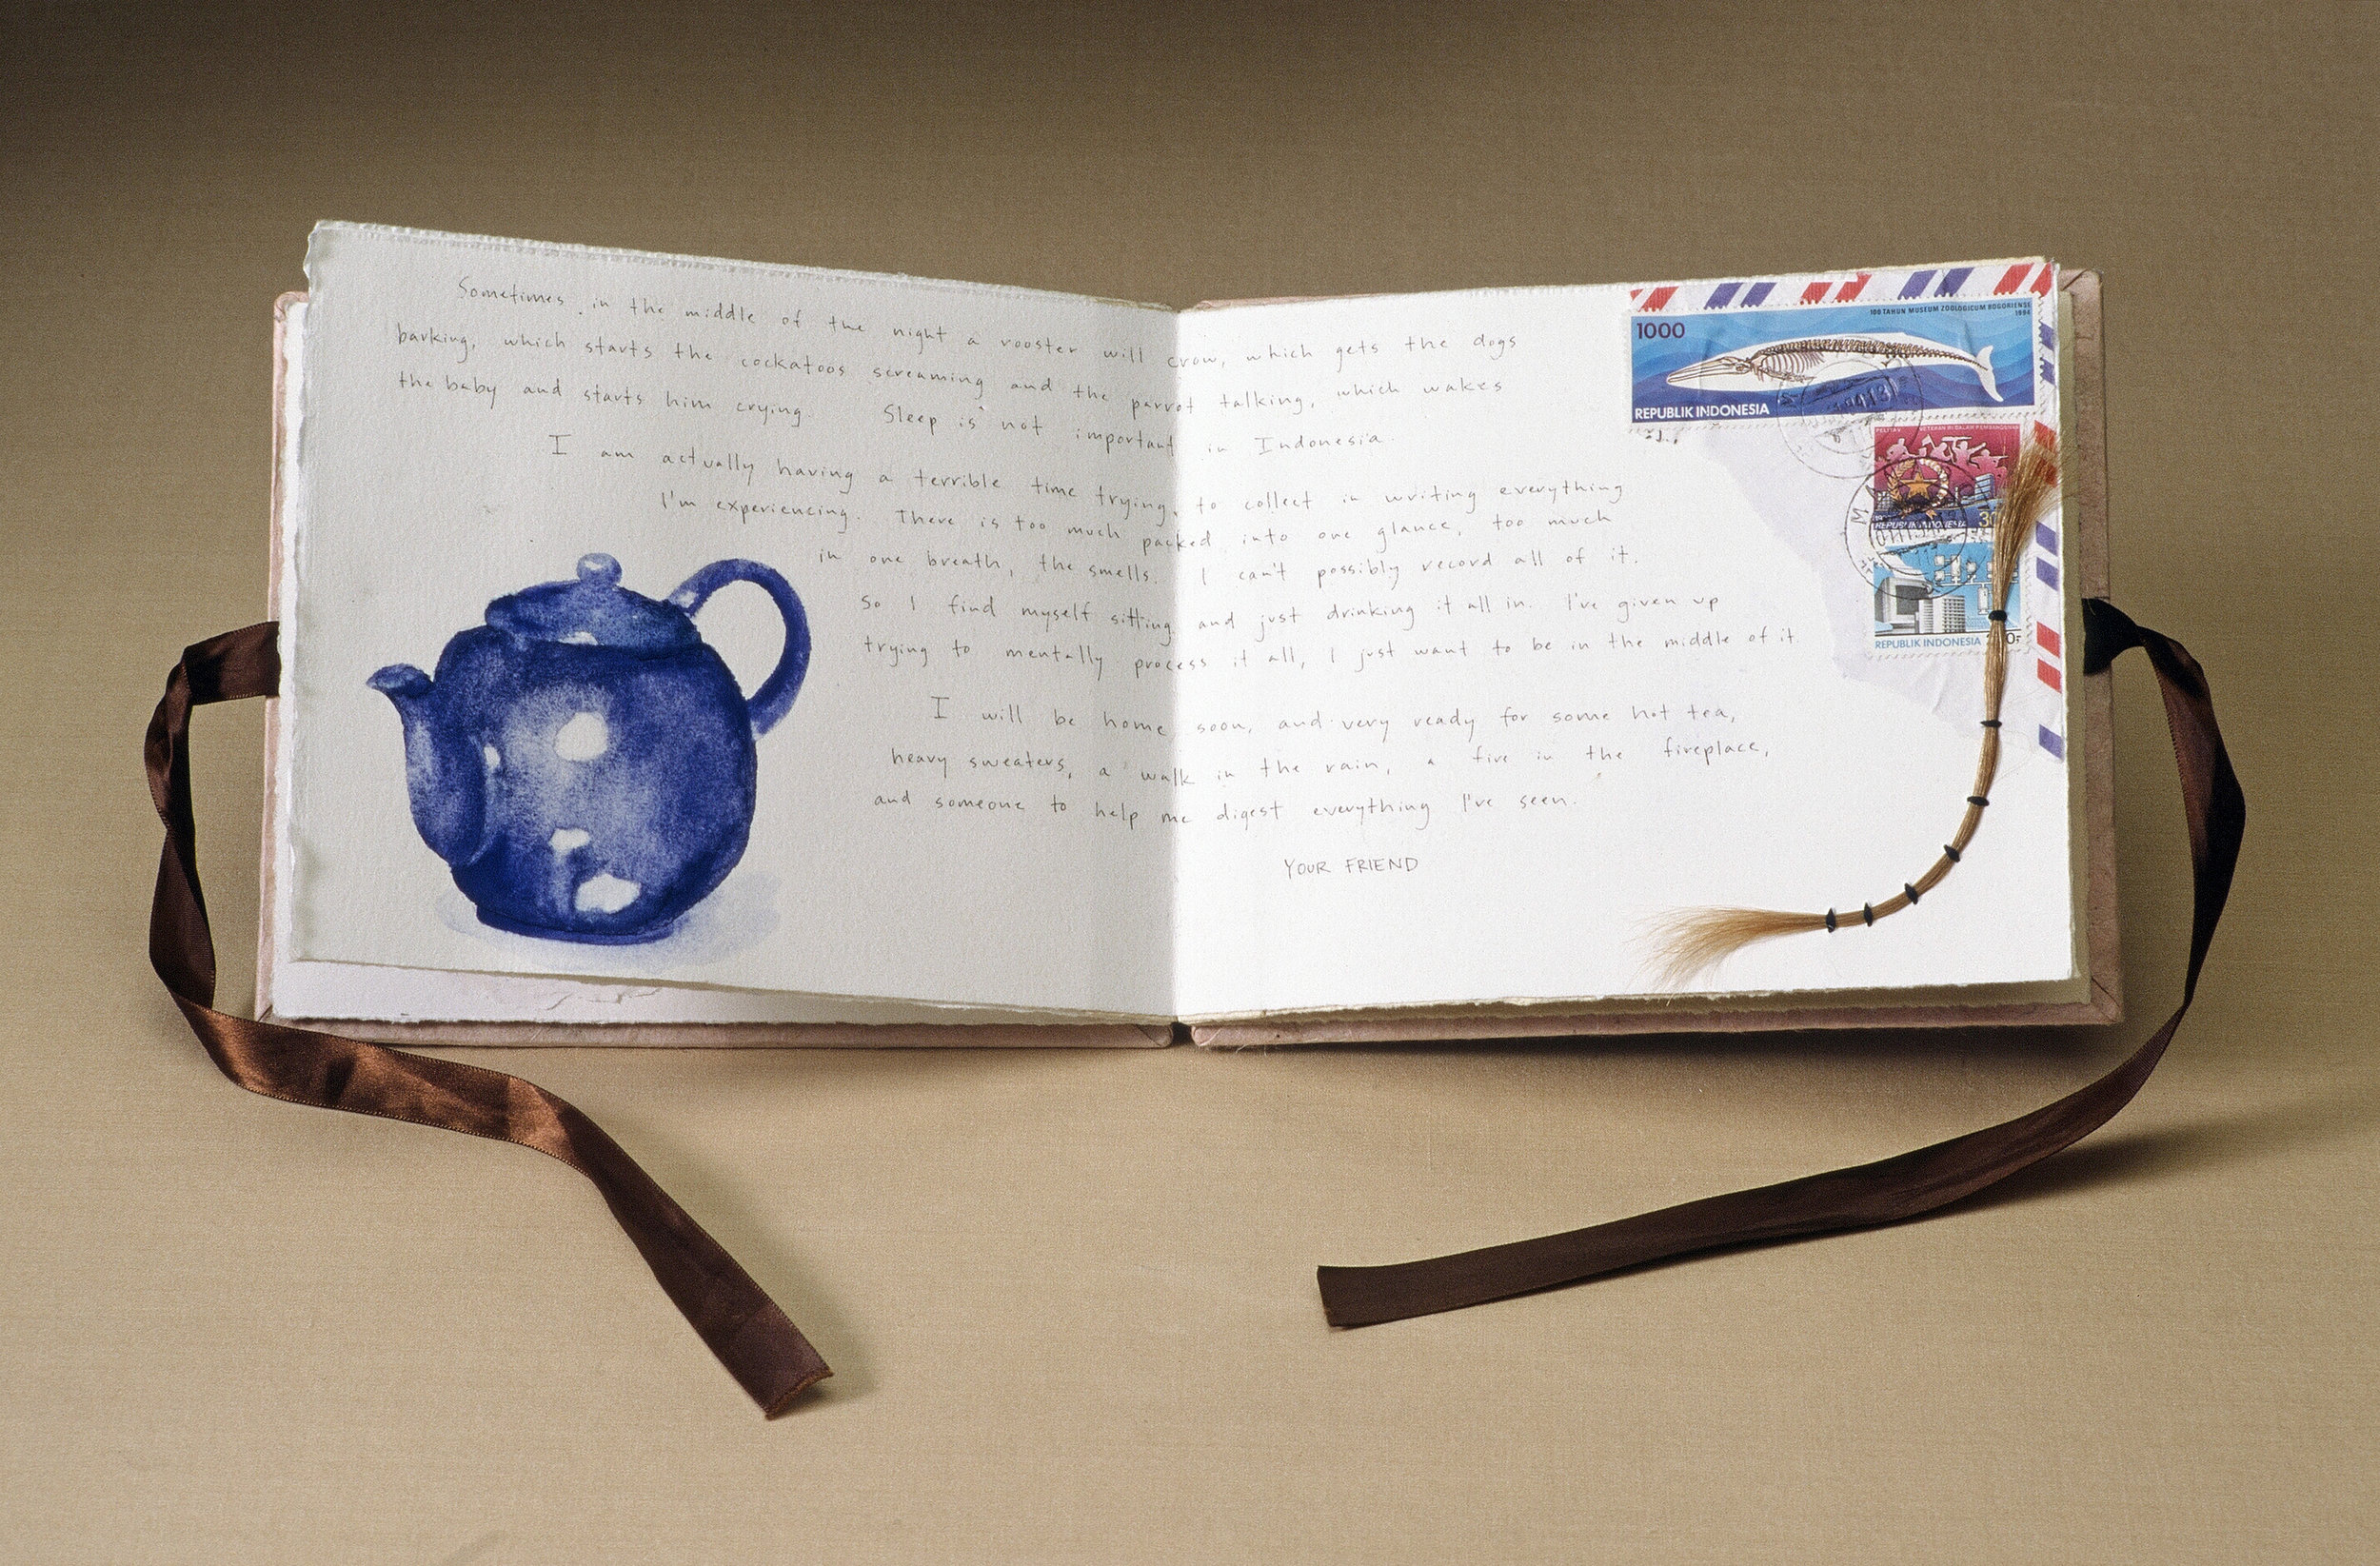 Sometimes in the middle of the night a rooster will crow, which gets the dogs
barking, which starts the cockatoos screaming and the parrot talking, which wakes
the baby and starts him crying. Sleep is not important in Indonesia.
I am actually having a terrible time trying to collect in writing everything
I'm experiencing. There is too much packed into one glance, too much
in one breath, the smells. I can't possibly record all of it.
So I find myself sitting and just drinking it all in. I've given up
trying to mentally process it all, I just want to be in the middle of it.
I will be home soon, and very ready for some hot tea,
heavy sweaters, a walk in the rain, a fire in the fireplace,
and someone to help me digest everything I've seen.
YOUR FRIEND
100 TAHUN MUSEUM ZOOLOGICUM BOGORIENSE
1994
1000
REPUBLIK INDONESIA
REPUBLIK INDONESIA
REPUBLIK INDONESIA